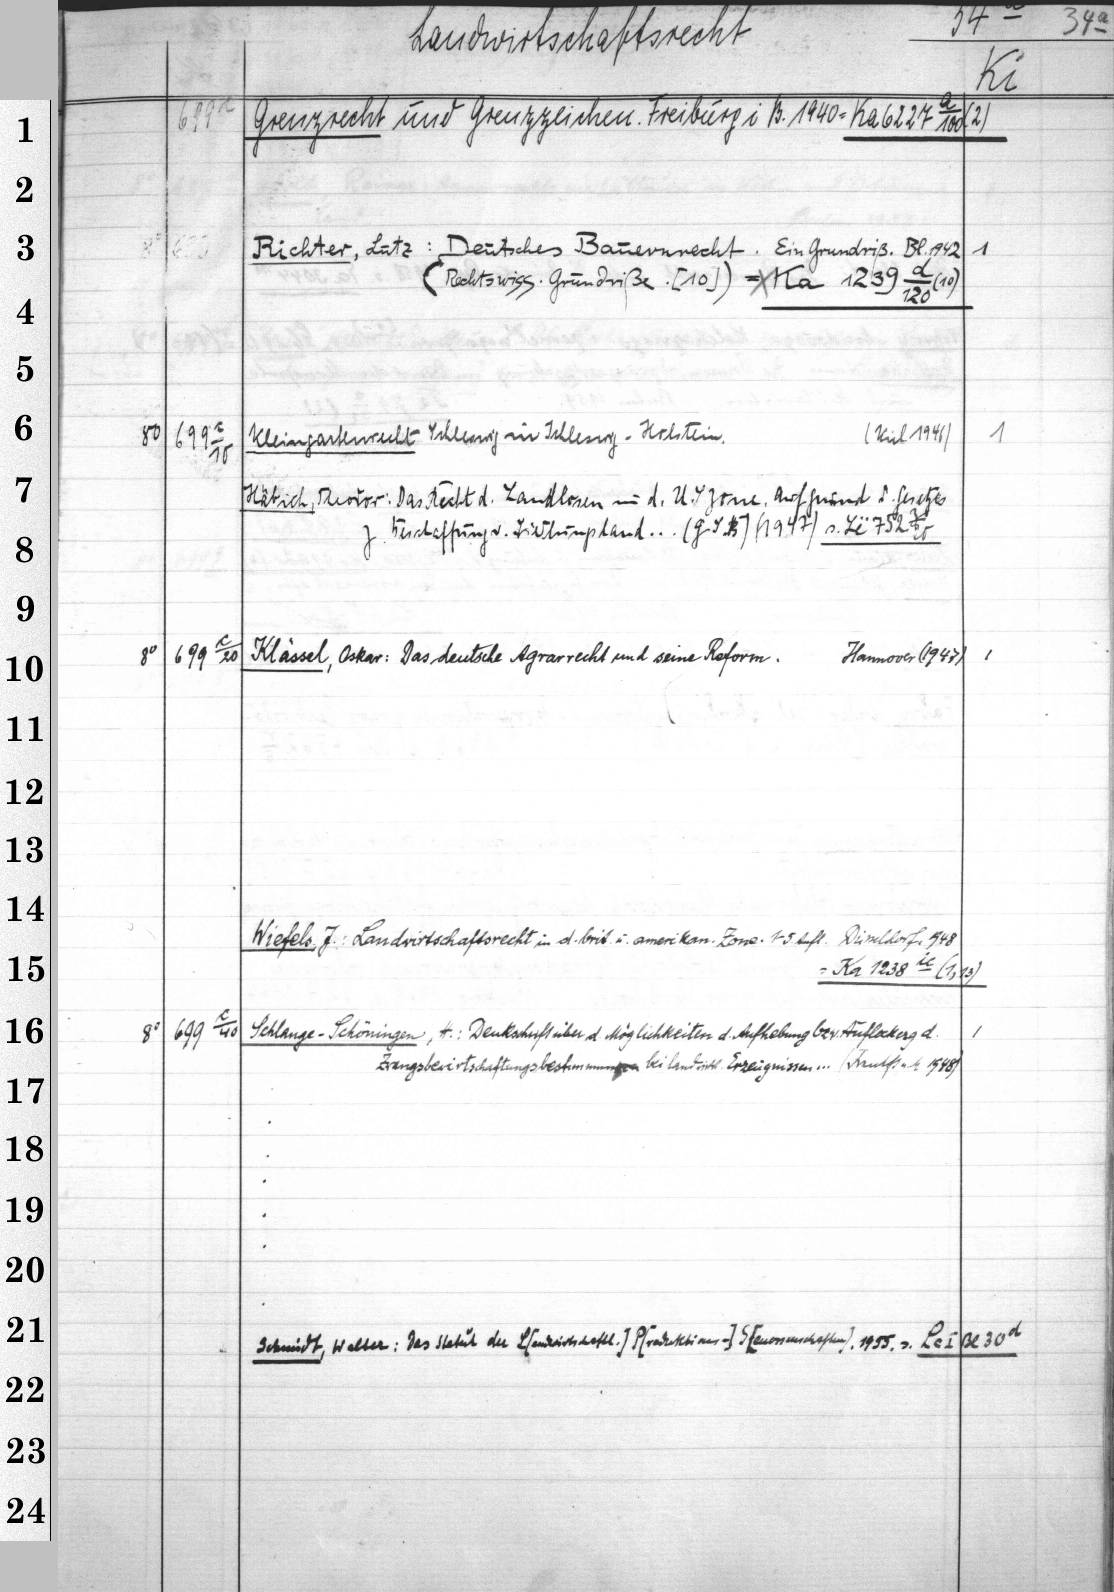 Landwirtschaftsrecht 34 a 34a
Ki
1 699 c Grenzrecht und Grenzzeichen. Freiburg i B. 1940 = Ka 6227 a/100 (2)
2
3 8° Richter, Lutz: Deutsches Bauernrecht. Ein Grundriß. Bl. 1942 1
(Rechtswiss. Grundriße. [10]) = Ka 1239 d/120 (10)
4
5
6 80 699 c/10 Kleingartenrecht in Schleswig-Holstein. (Kiel 1946) 1
7 Häbich, Theodor: Das Recht d. Landlosen in d. US Zone. Auf Grund d. Gesetzes
8 z. Beschaffung v. Siedlungsland... (G.S.B) (1947) s. 752
9
10 8° 699 c/20 Klässel, Oskar: Das deutsche Agrarrecht und seine Reform. Hannover (1947) 1
11
12
13
14 Wiefels, J.: Landwirtschaftsrecht in d. brit. u. amerikan. Zone. 1-5 Aufl. Düsseldorf 1948
15 = Ka 1238 (1,13)
16 8° 699 c/40 Schlange-Schöningen, H.: Denkschrift über d. Möglichkeiten d. Aufhebung bzw. Auflockerg d. 1
Zwangsbewirtschaftungsbestimmungen bei landwirt. Erzeugnissen... (Frankf. 1948)
17
18
19
20
21 Schmidt, Walter: Das Statut der L[andwirtschaftl.] P[roduktions-] G[enossenschaften]. 1955. s. Le I Be 30 d
22
23
24